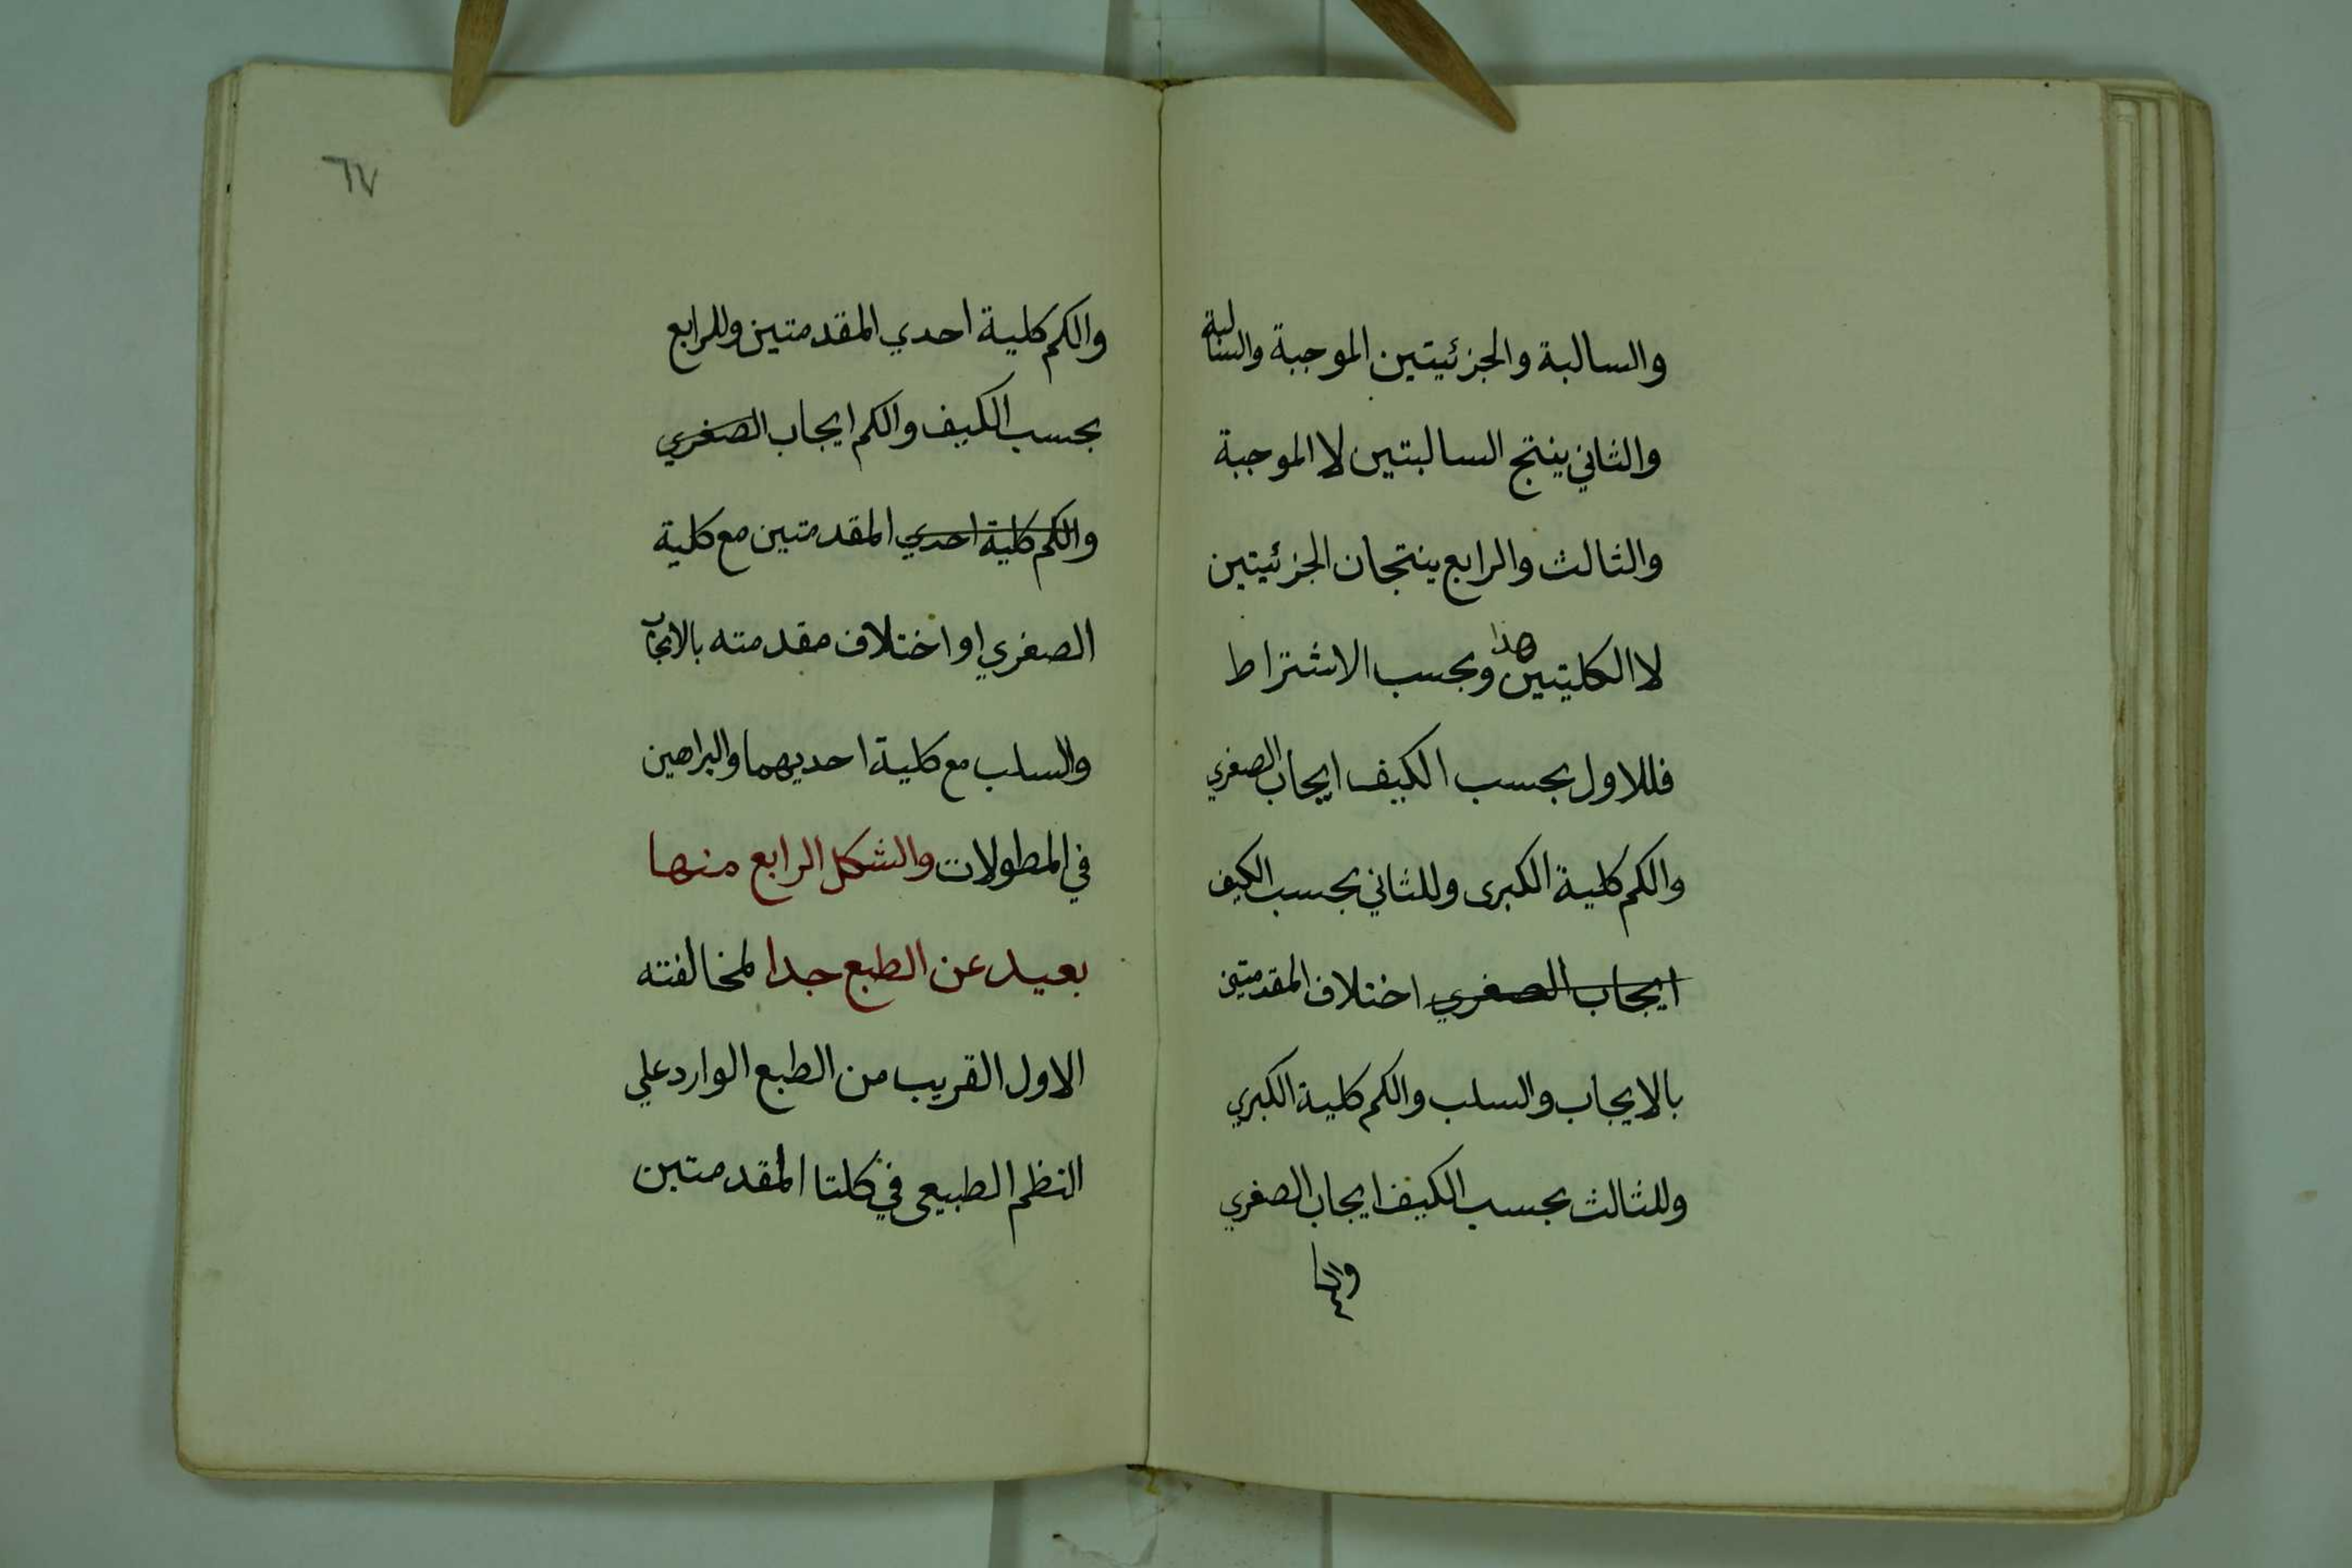 والسالبة والجزئيتين الموجبة والسالبة
والثاني ينتج السالبتين لا الموجبة
والثالث والرابع ينتجان الجزئيتين
لا الكليتين هذا وبحسب الاشتراط
فللاول بحسب الكيف ايجاب الصغري
والكم كلية الكبرى وللثاني بحسب الكيف
ايجاب الصغري اختلاف المقدمتين
بالايجاب والسلب والكم كلية الكبري
وللثالث بحسب الكيف ايجاب الصغري
والكم
٦٧
والكم كلية احدي المقدمتين وللرابع
بحسب الكيف والكم ايجاب الصغري
والكم كلية احدي المقدمتين مع كلية
الصغري او اختلاف مقدمته بالايجاب
والسلب مع كلية احديهما والبراهين
في المطولات والشكل الرابع منها
بعيد عن الطبع جدا لمخالفته
الاول القريب من الطبع الوارد علي
النظم الطبيعي في كلتا المقدمتين